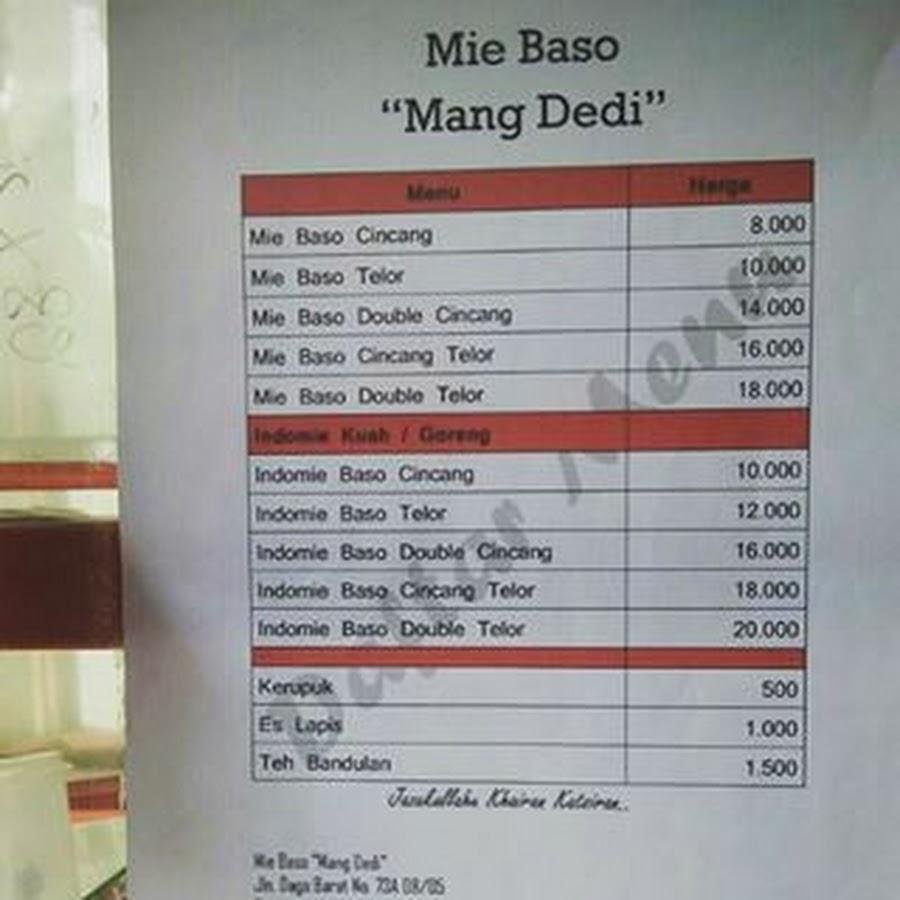 Mie Baso
“Mang Dedi”
Menu Harga
Mie Baso Cincang 8.000
Mie Baso Telor 10.000
Mie Baso Double Cincang 14.000
Mie Baso Cincang Telor 16.000
Mie Baso Double Telor 18.000
Indomie Kuah / Goreng
Indomie Baso Cincang 10.000
Indomie Baso Telor 12.000
Indomie Baso Double Cincang 16.000
Indomie Baso Cincang Telor 18.000
Indomie Baso Double Telor 20.000
Kerupuk 500
Es Lapis 1.000
Teh Bandulan 1.500
Daftar Menu
Jazakallahu Khairan Katsiran..
Mie Baso "Mang Dedi"
Jln. Daga Barat No. 73A 08/05